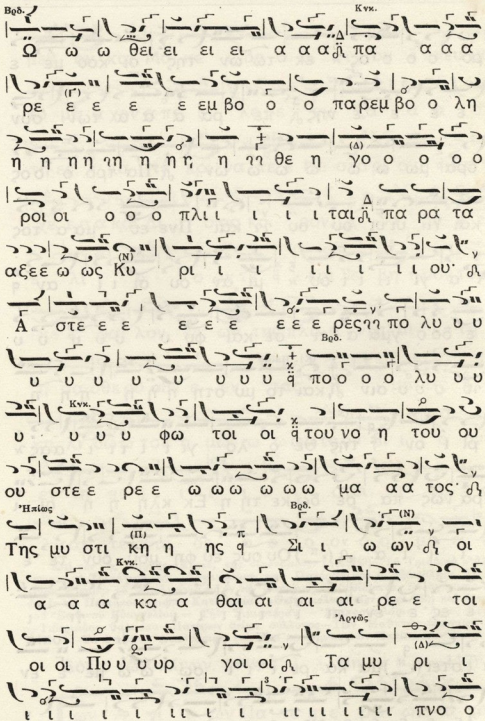 Βρδ. Κνκ.
Ω ω ω θει ει ει ει α α α Δ πα α α α
ρε ε ε ε ε εμ βο ο ο πα ρεμ βο ο λη
(Γ)
η η η η η η η η η η θε η γο ο ο ο ο
(Δ)
ροι οι ο ο ο πλι ι ι ι ι ι ται Δ πα ρα τα
αξεε ω ως Κυ ρι ι ι ι ι ι ι ι ου·
(Ν) ν
Α στε ε ε ε ε ε ε ε ε ρες η πο λυ υ υ
ν
Βρδ.
υ υ υ υ υ υ υ υ q πο ο ο ο λυ υ υ
Κνκ.
υ υ υ υ φω τοι οι q του νο η του ου
ου στε ε ρε ε ω ω ω ω ω ω μα α α τος·
ν
Ἠπίως Βρδ. (Ν)
Της μυ στι κη η ης q Σι ω ων οι
(Π) π ν
Κνκ.
α α α κα α θαι αι αι αι ρε ε τοι
οι οι Πυ υ υ υρ γοι οι Τα μυ ρι
ν Ἀργῶς (Δ)
ι ι ι ι ι ι ι ι ι ι ι ι ι ι ι πνο ο
3